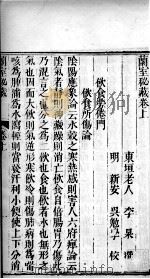 蘭室秘藏卷上
東垣老人 李 杲 撰
明 新安 吳勉學 校
飲食勞倦門
飲食所傷論
陰陽應象論云水穀之寒熱感則害人六腑痺論云
陰氣者靜則神藏躁則消亡飲食自倍腸胃乃傷此
乃混言之也分之為二飲也食也飲者水也無形之
氣也因而大飲則氣逆形寒飲冷則傷肺病則為喘
咳為腫滿為水瀉輕則當發汗利小便使上下分消
蘭室秘藏 卷上